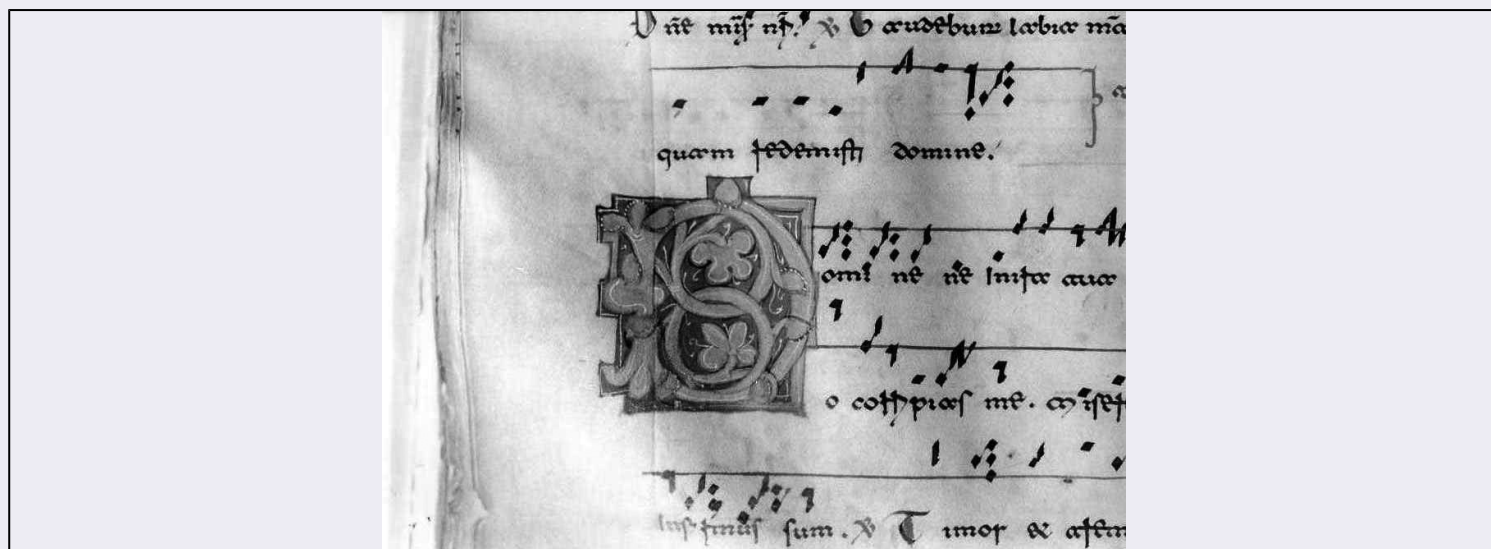 G audebunt labia m̅a
quam redemisti domine.
D omi ne ne in ira tua
o corripias me. M iser
infirmus sum. ℣ T imor & trem